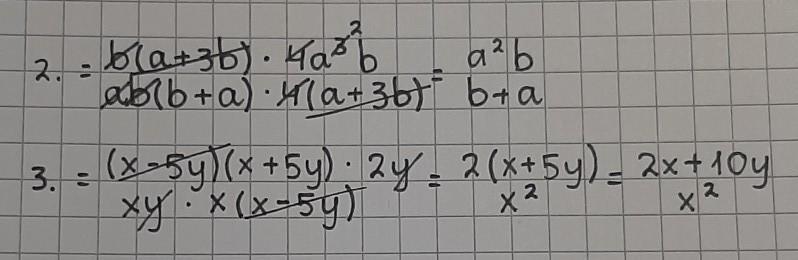 2. = b(a+3b) · 4a³ ² b / ab(b+a) · 4(a+3b) = a²b / b+a
3. = (x-5y)(x+5y) · 2y / xy · x(x-5y) = 2(x+5y) / x² = 2x+10y / x²